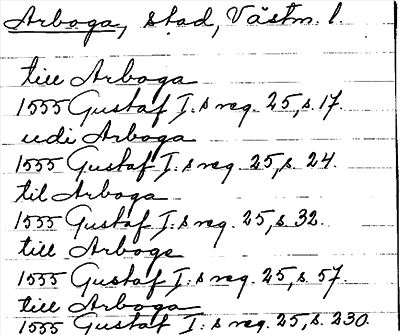 Arboga, stad, Västm. l.
till Arboga
1555 Gustaf I:s reg. 25, s. 17.
udi Arboga
1555 Gustaf I:s reg. 25, s. 24.
til Arboga
1555 Gustaf I:s reg. 25, s. 32.
till Arboge
1555 Gustaf I:s reg. 25, s. 57.
till Arboga
1555 Gustaf I:s reg. 25, s. 230.